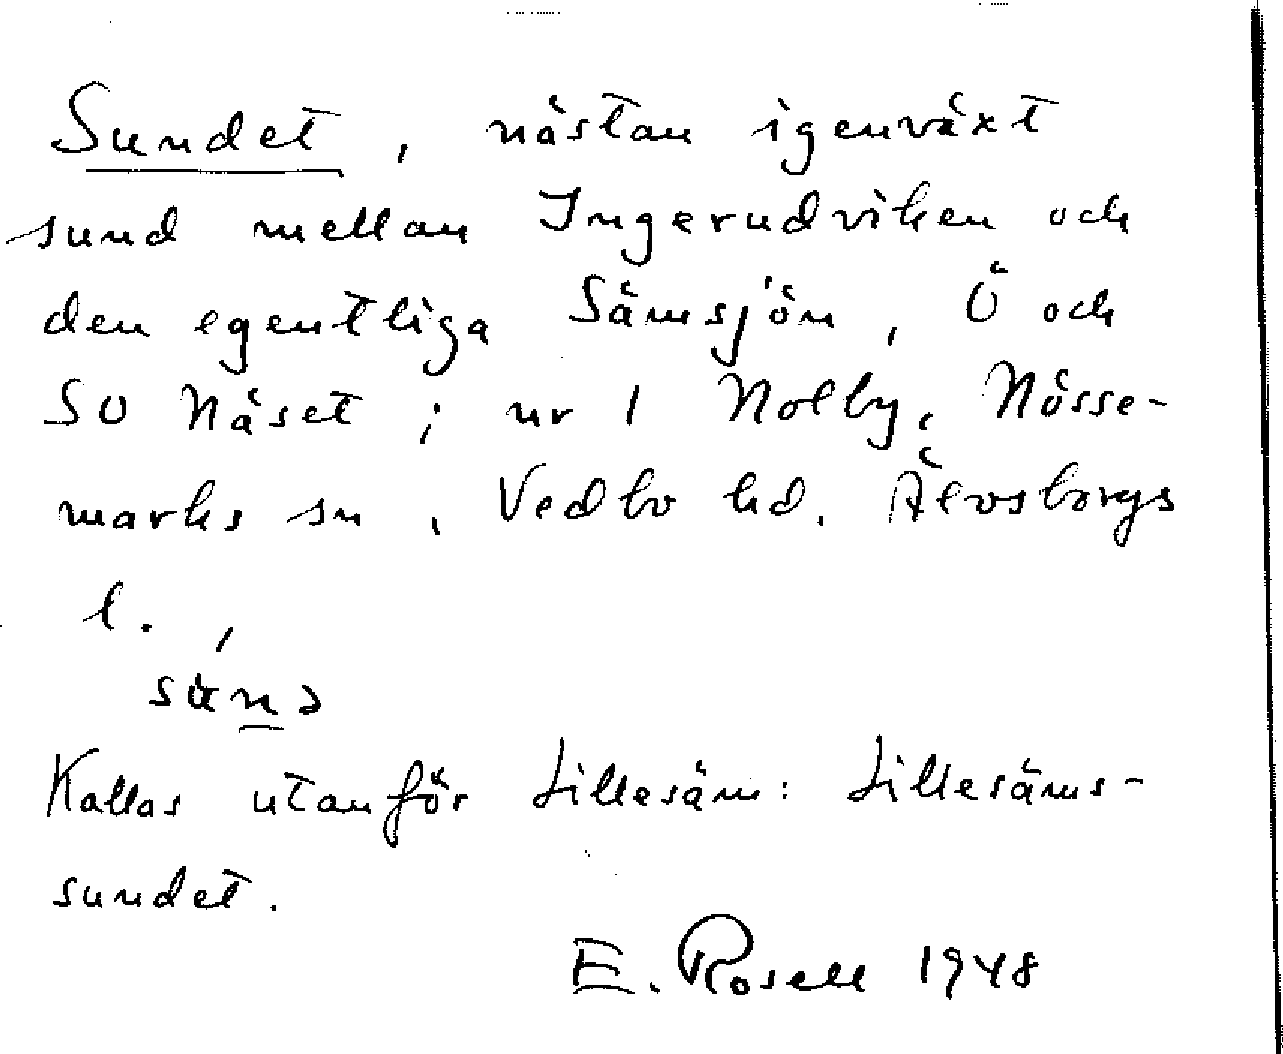 Sundet, nästan igenväxt
sund mellan Ingerudviken och
den egentliga Sämsjön, Ö och
SO Näset; nr 1 Nolby, Nösse-
marks sn, Vedbo hd. Älvsborgs
l.,
Kallas utanför Lillesäm: Lillesäms-
sundet.
E. Rosell 1948